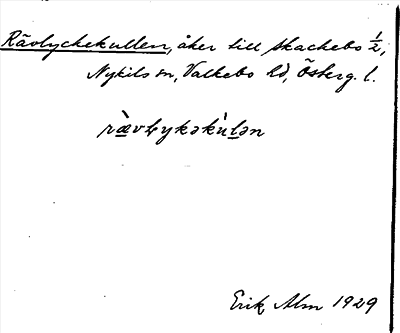 Rävlyckekullen, åker till Skachebo ½,
Nykils sn, Valkebo hd, Österg. l.
rævlykəkulən
Erik Alm 1929